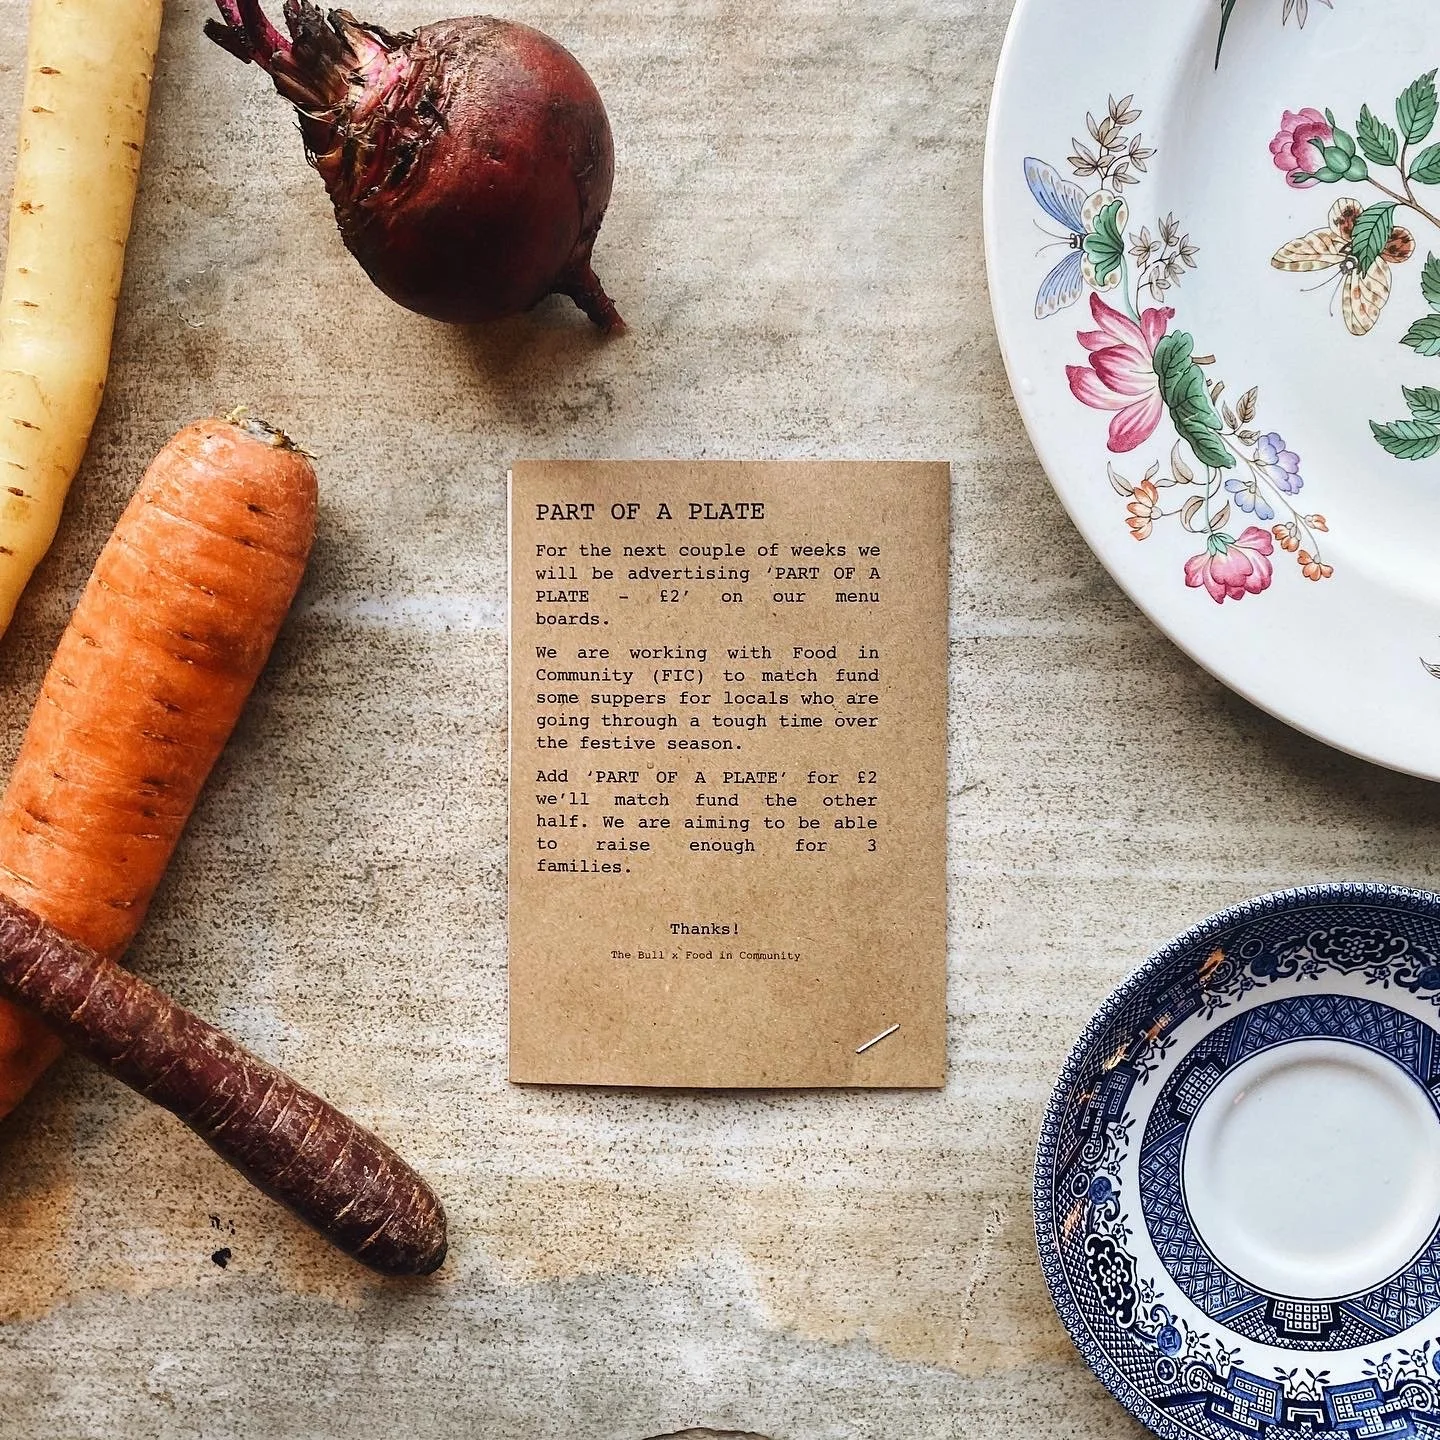 PART OF A PLATE
For the next couple of weeks we
will be advertising ‘PART OF A
PLATE – £2’ on our menu
boards.
We are working with Food in
Community (FIC) to match fund
some suppers for locals who are
going through a tough time over
the festive season.
Add ‘PART OF A PLATE’ for £2
we’ll match fund the other
half. We are aiming to be able
to raise enough for 3
families.
Thanks!
The Bull x Food in Community